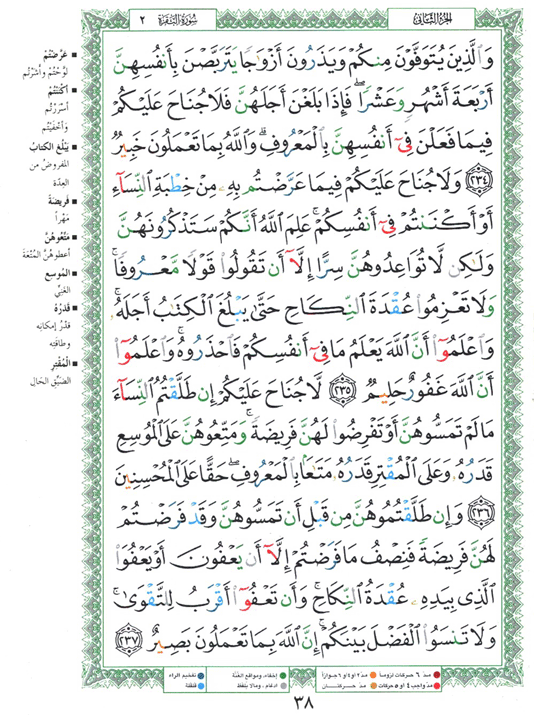 سُورَةُ البَقَرَةِ ٢
الجزء الثاني
وَٱلَّذِينَ يُتَوَفَّوْنَ مِنكُمْ وَيَذَرُونَ أَزْوَٰجًا يَتَرَبَّصْنَ بِأَنفُسِهِنَّ
أَرْبَعَةَ أَشْهُرٍ وَعَشْرًا ۖ فَإِذَا بَلَغْنَ أَجَلَهُنَّ فَلَا جُنَاحَ عَلَيْكُمْ
فِيمَا فَعَلْنَ فِىٓ أَنفُسِهِنَّ بِٱلْمَعْرُوفِ ۗ وَٱللَّهُ بِمَا تَعْمَلُونَ خَبِيرٌ
٢٣٤ وَلَا جُنَاحَ عَلَيْكُمْ فِيمَا عَرَّضْتُم بِهِۦ مِنْ خِطْبَةِ ٱلنِّسَآءِ
أَوْ أَكْنَنتُمْ فِىٓ أَنفُسِكُمْ ۚ عَلِمَ ٱللَّهُ أَنَّكُمْ سَتَذْكُرُونَهُنَّ
وَلَٰكِن لَّا تُوَاعِدُوهُنَّ سِرًّا إِلَّآ أَن تَقُولُوا۟ قَوْلًا مَّعْرُوفًا ۚ
وَلَا تَعْزِمُوا۟ عُقْدَةَ ٱلنِّكَاحِ حَتَّىٰ يَبْلُغَ ٱلْكِتَٰبُ أَجَلَهُۥ ۚ
وَٱعْلَمُوٓا۟ أَنَّ ٱللَّهَ يَعْلَمُ مَا فِىٓ أَنفُسِكُمْ فَٱحْذَرُوهُ ۚ وَٱعْلَمُوٓا۟
أَنَّ ٱللَّهَ غَفُورٌ حَلِيمٌ ٢٣٥ لَّا جُنَاحَ عَلَيْكُمْ إِن طَلَّقْتُمُ ٱلنِّسَآءَ
مَا لَمْ تَمَسُّوهُنَّ أَوْ تَفْرِضُوا۟ لَهُنَّ فَرِيضَةً ۚ وَمَتِّعُوهُنَّ عَلَى ٱلْمُوسِعِ
قَدَرُهُۥ وَعَلَى ٱلْمُقْتِرِ قَدَرُهُۥ مَتَٰعًۢا بِٱلْمَعْرُوفِ ۖ حَقًّا عَلَى ٱلْمُحْسِنِينَ
٢٣٦ وَإِن طَلَّقْتُمُوهُنَّ مِن قَبْلِ أَن تَمَسُّوهُنَّ وَقَدْ فَرَضْتُمْ
لَهُنَّ فَرِيضَةً فَنِصْفُ مَا فَرَضْتُمْ إِلَّآ أَن يَعْفُونَ أَوْ يَعْفُوَا۟
ٱلَّذِى بِيَدِهِۦ عُقْدَةُ ٱلنِّكَاحِ ۚ وَأَن تَعْفُوٓا۟ أَقْرَبُ لِلتَّقْوَىٰ ۚ
وَلَا تَنسَوُا۟ ٱلْفَضْلَ بَيْنَكُمْ ۚ إِنَّ ٱللَّهَ بِمَا تَعْمَلُونَ بَصِيرٌ ٢٣٧
■ عَرَّضْتُمْ
لَوَّحْتُمْ وأشَرْتُم
■ أَكْنَنتُمْ
أَسْرَرْتُم
وَأَخْفَيْتُم
■ يَبْلُغَ الكتابُ
المفروضُ من
العِدّة
■ فَرِيضَةً
مَهْراً
■ مَتِّعُوهُنَّ
أعطوهُنَّ المُتْعَة
■ المُوسِعِ
الغَنِيِّ
■ قَدَرُهُ
قَدْرُ إمكانِهِ
وطاقَتِهِ
■ الْمُقْتِرِ
الضَيِّقِ الحَال
مدّ ٦ حركات لزوماً
مدّ ٢ او ٤ او ٦ جوازاً
إخفاء، ومواقع الغُنَّة
تفخيم الراء
مدّ واجب ٤ او ٥ حركات
مدّ حركتان
ادغام، ومالا يُلفَظ
قلقلة
٣٨